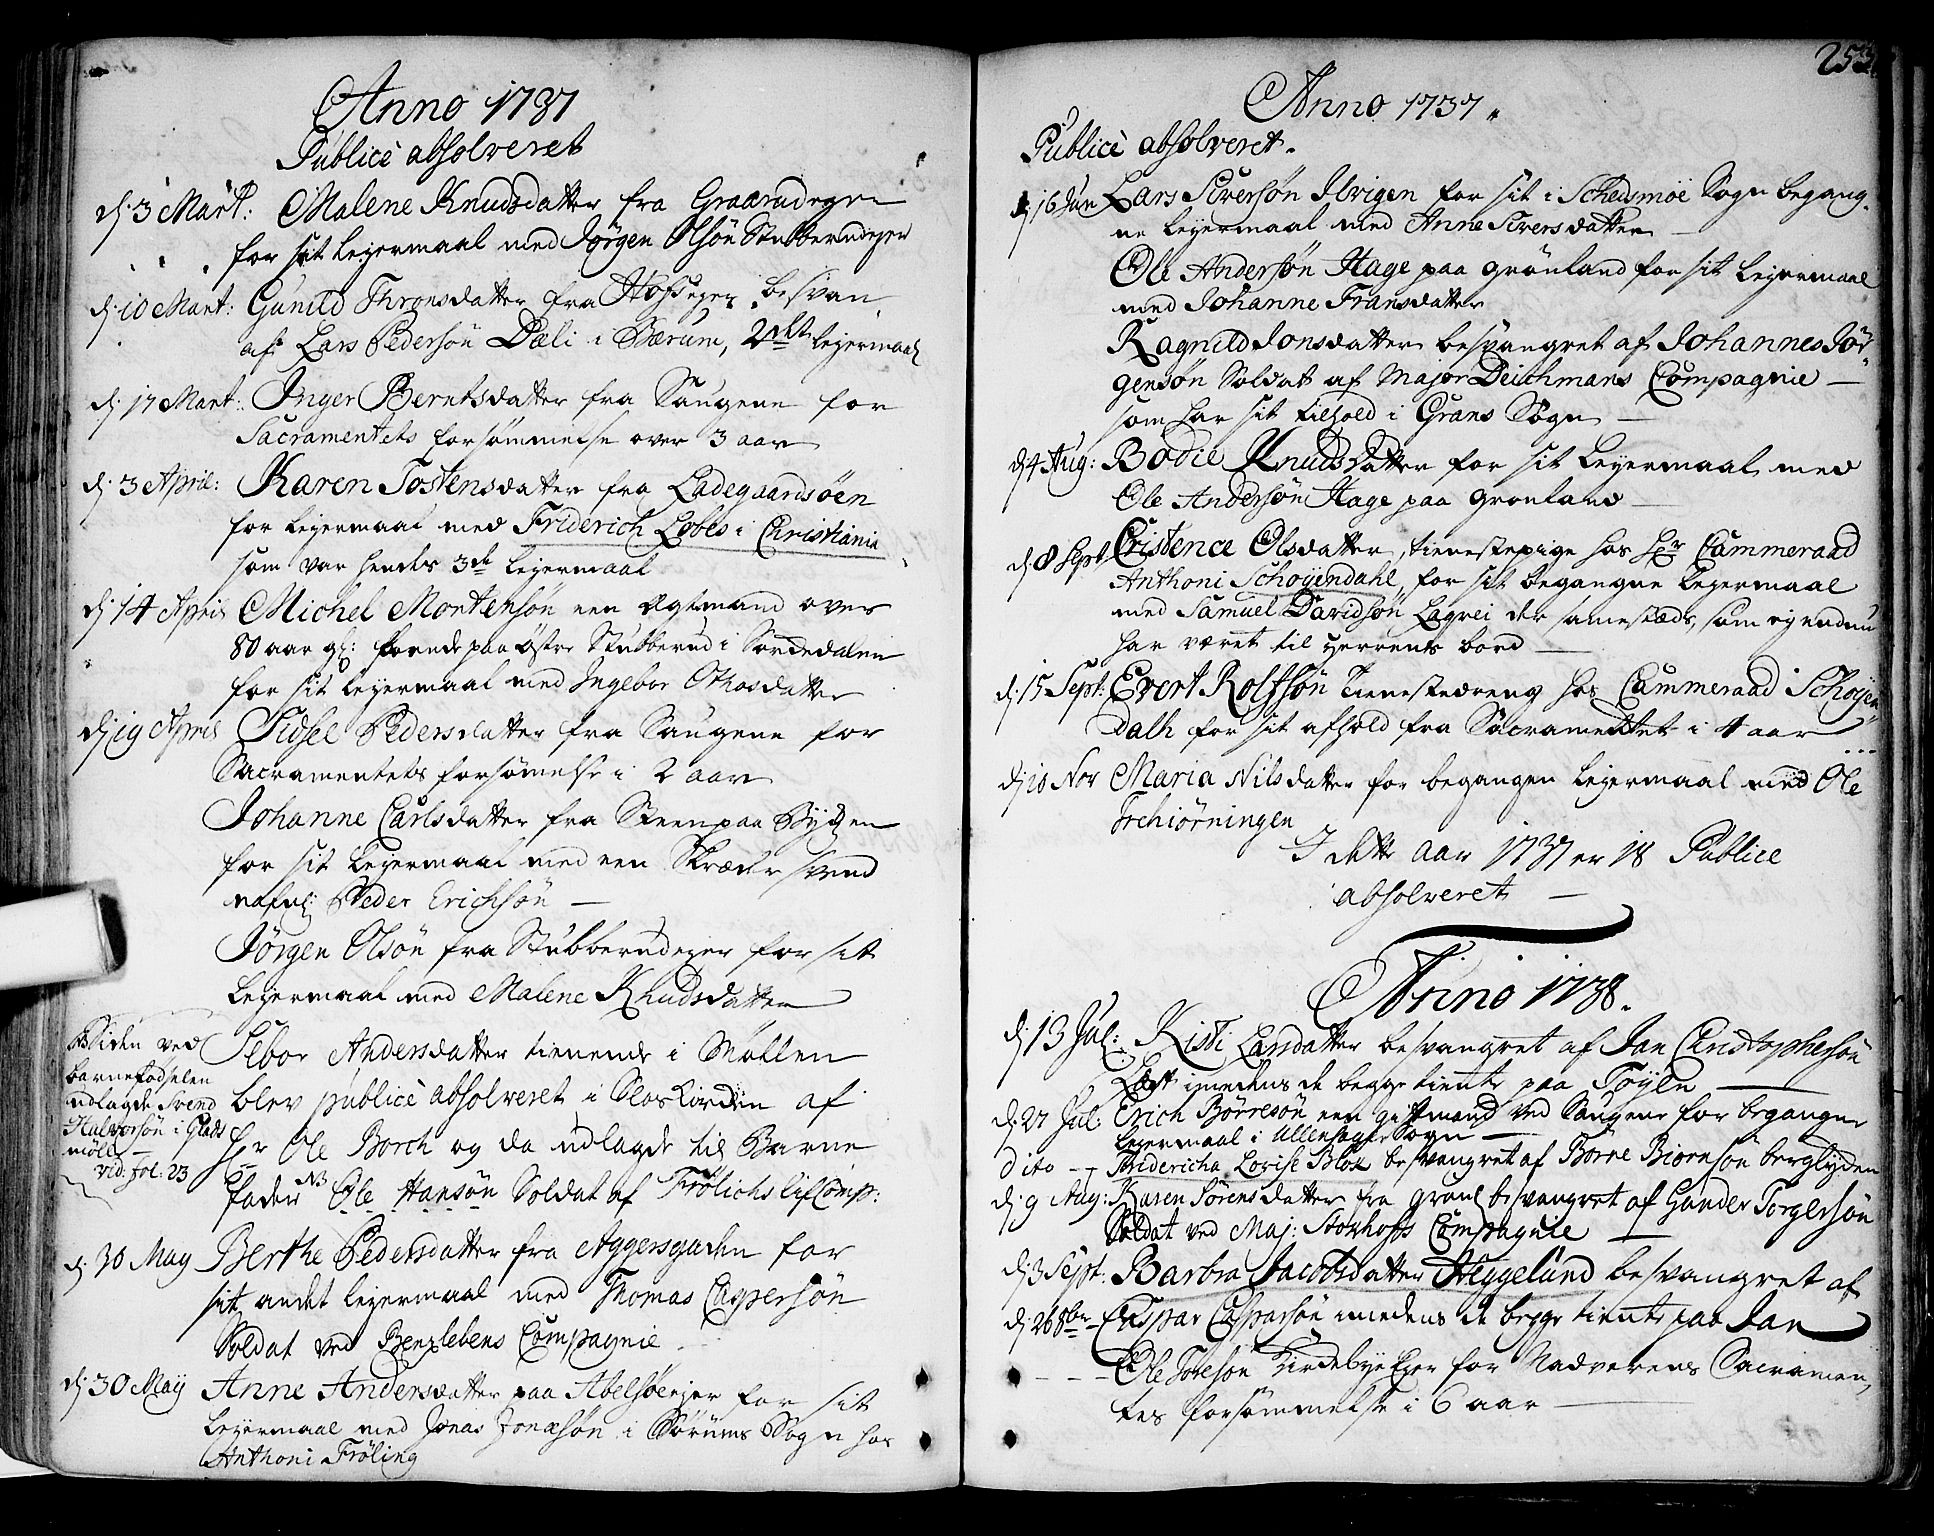 Anno 1737
Publicè absolveret
d. 3 Mart: Malene Knudsdatter fra Graarudegen
for sit lejermaal med Jørgen Olsøn Stubberudejer
d. 10 Mart: Gunild Thronsdatter fra Hofsejer besvan
af Lars Pedersøn Dæli i Bærum, 2det lejermaal
d. 17 Mart: Inger Berntsdatter fra Saugene for
Sacramentets forsømmelse over 3 aar
d. 3 April: Karen Tostensdatter fra Ladegaardsøen
for lejermaal med Friderich Lobes i Christiania
som var hendes 3de lejermaal
d. 14 April Michel Mortensøn een Ægtmand over
80 aar gl: paa østre Stubberud i Sørdedalen
for sit lejermaal med Ingebor Othosdatter
d. 19 April Sidsel Pedersdatter fra Saugene for
Sacramentets forsømelse i 2 aar
Johanne Carlsdatter fra Steen paa Bygden
for sit lejermaal med een Skræder svend
nafnl: Peder Erichsøn —
Jørgen Olsøn fra Stubberudejer for sit
lejermaal med Malene Knudsdatter
NB Siden ved
barnefødselen
udlagde Svend
Halvorsøn i Glads
mølle —
vid: fol: 23
Sebor Andersdatter tienende i Møllen
blev publicè absolveret i Slos Kirken af
Hr Ole Borch og da udlagde til Barne
fader NB Ole Hansøn Soldat af Frølichs lif Comp:
d. 30 May Berthe Pedersdatter fra Aggersgaden for
sit andet lejermaal med Thomas Caspersøn
Soldat ved Benzlebens Compagnie
d. 30 Maÿ Anne Andersdatter paa Abelsøeejer for sit
lejermaal med Jonas Jonæsøn i Sørums Sogn hos
Anthoni Frøling
253
Anno 1737.
Publicè absolveret.
d. 16 Jun Lars Siversøn Ibrigen for sit i Schedsmoe Sogn begang-
ne lejermaal med Anne Siversdatter —
Ole Andersøn Hage paa Grønland for sit lejermaal
med Johanne Fransdatter
Ragnild Jonsdatter besvangret af Johannes Jør-
gensøn Soldat af Major Deichmans Compagnie —
som har sit tilhold i Grans Sogn —
d. 4 Aug: Bodil Knudsdatter for sit lejermaal med
Ole Andersøn Hage paa Grønland —
d. 8 Sept Cristence Olsdatter, tienestepige hos Hr Cammeraad
Anthoni Schøyendahl, for sit begangne lejermaal
med Samuel Davidsøn Lagrei der samestæds, som ey endnu
har været til Herrens bord —
d. 15 Sept: Evert Rolfsøn Tienestedreng hos Cammeraad Schøyen-
Dalh for sit afhold fra Sacramentet i 4 aar
d. 10 Nov Maria Nilsdatter for begangen lejermaal med Ole
Trehiørningen
I dette aar 1737 er 18 Publice
absolveret —
Anno 1738.
d. 13 Jul: Kisti Larsdatter besvangret af Jan Christophersøn
imedens de begge tiente paa Tøyen —
d. 27 Jul: Erich Børresøn een giftmand ved Saugene for begangne
lejermaal i Ullensager Sogn —
dito - - Fridericha Lovise Blox besvangret af Børne Biørnsøn berglyden
d. 9 Aug: Karen Sørensdatter fra gran besvangret af Gunder Torgersøn
Soldat ved Maj: Storhofs Compagnie —
d. 3 Sept: Barbra Jacobsdatter Heggelund besvangret af
d. 26 8br Caspar Casparsøn imedens de begge tiente paa Jar
- - - Ole Toresøn Kirkebye Ejer for Nadverens Sacramen-
tes forsømmelse i 6 aar —